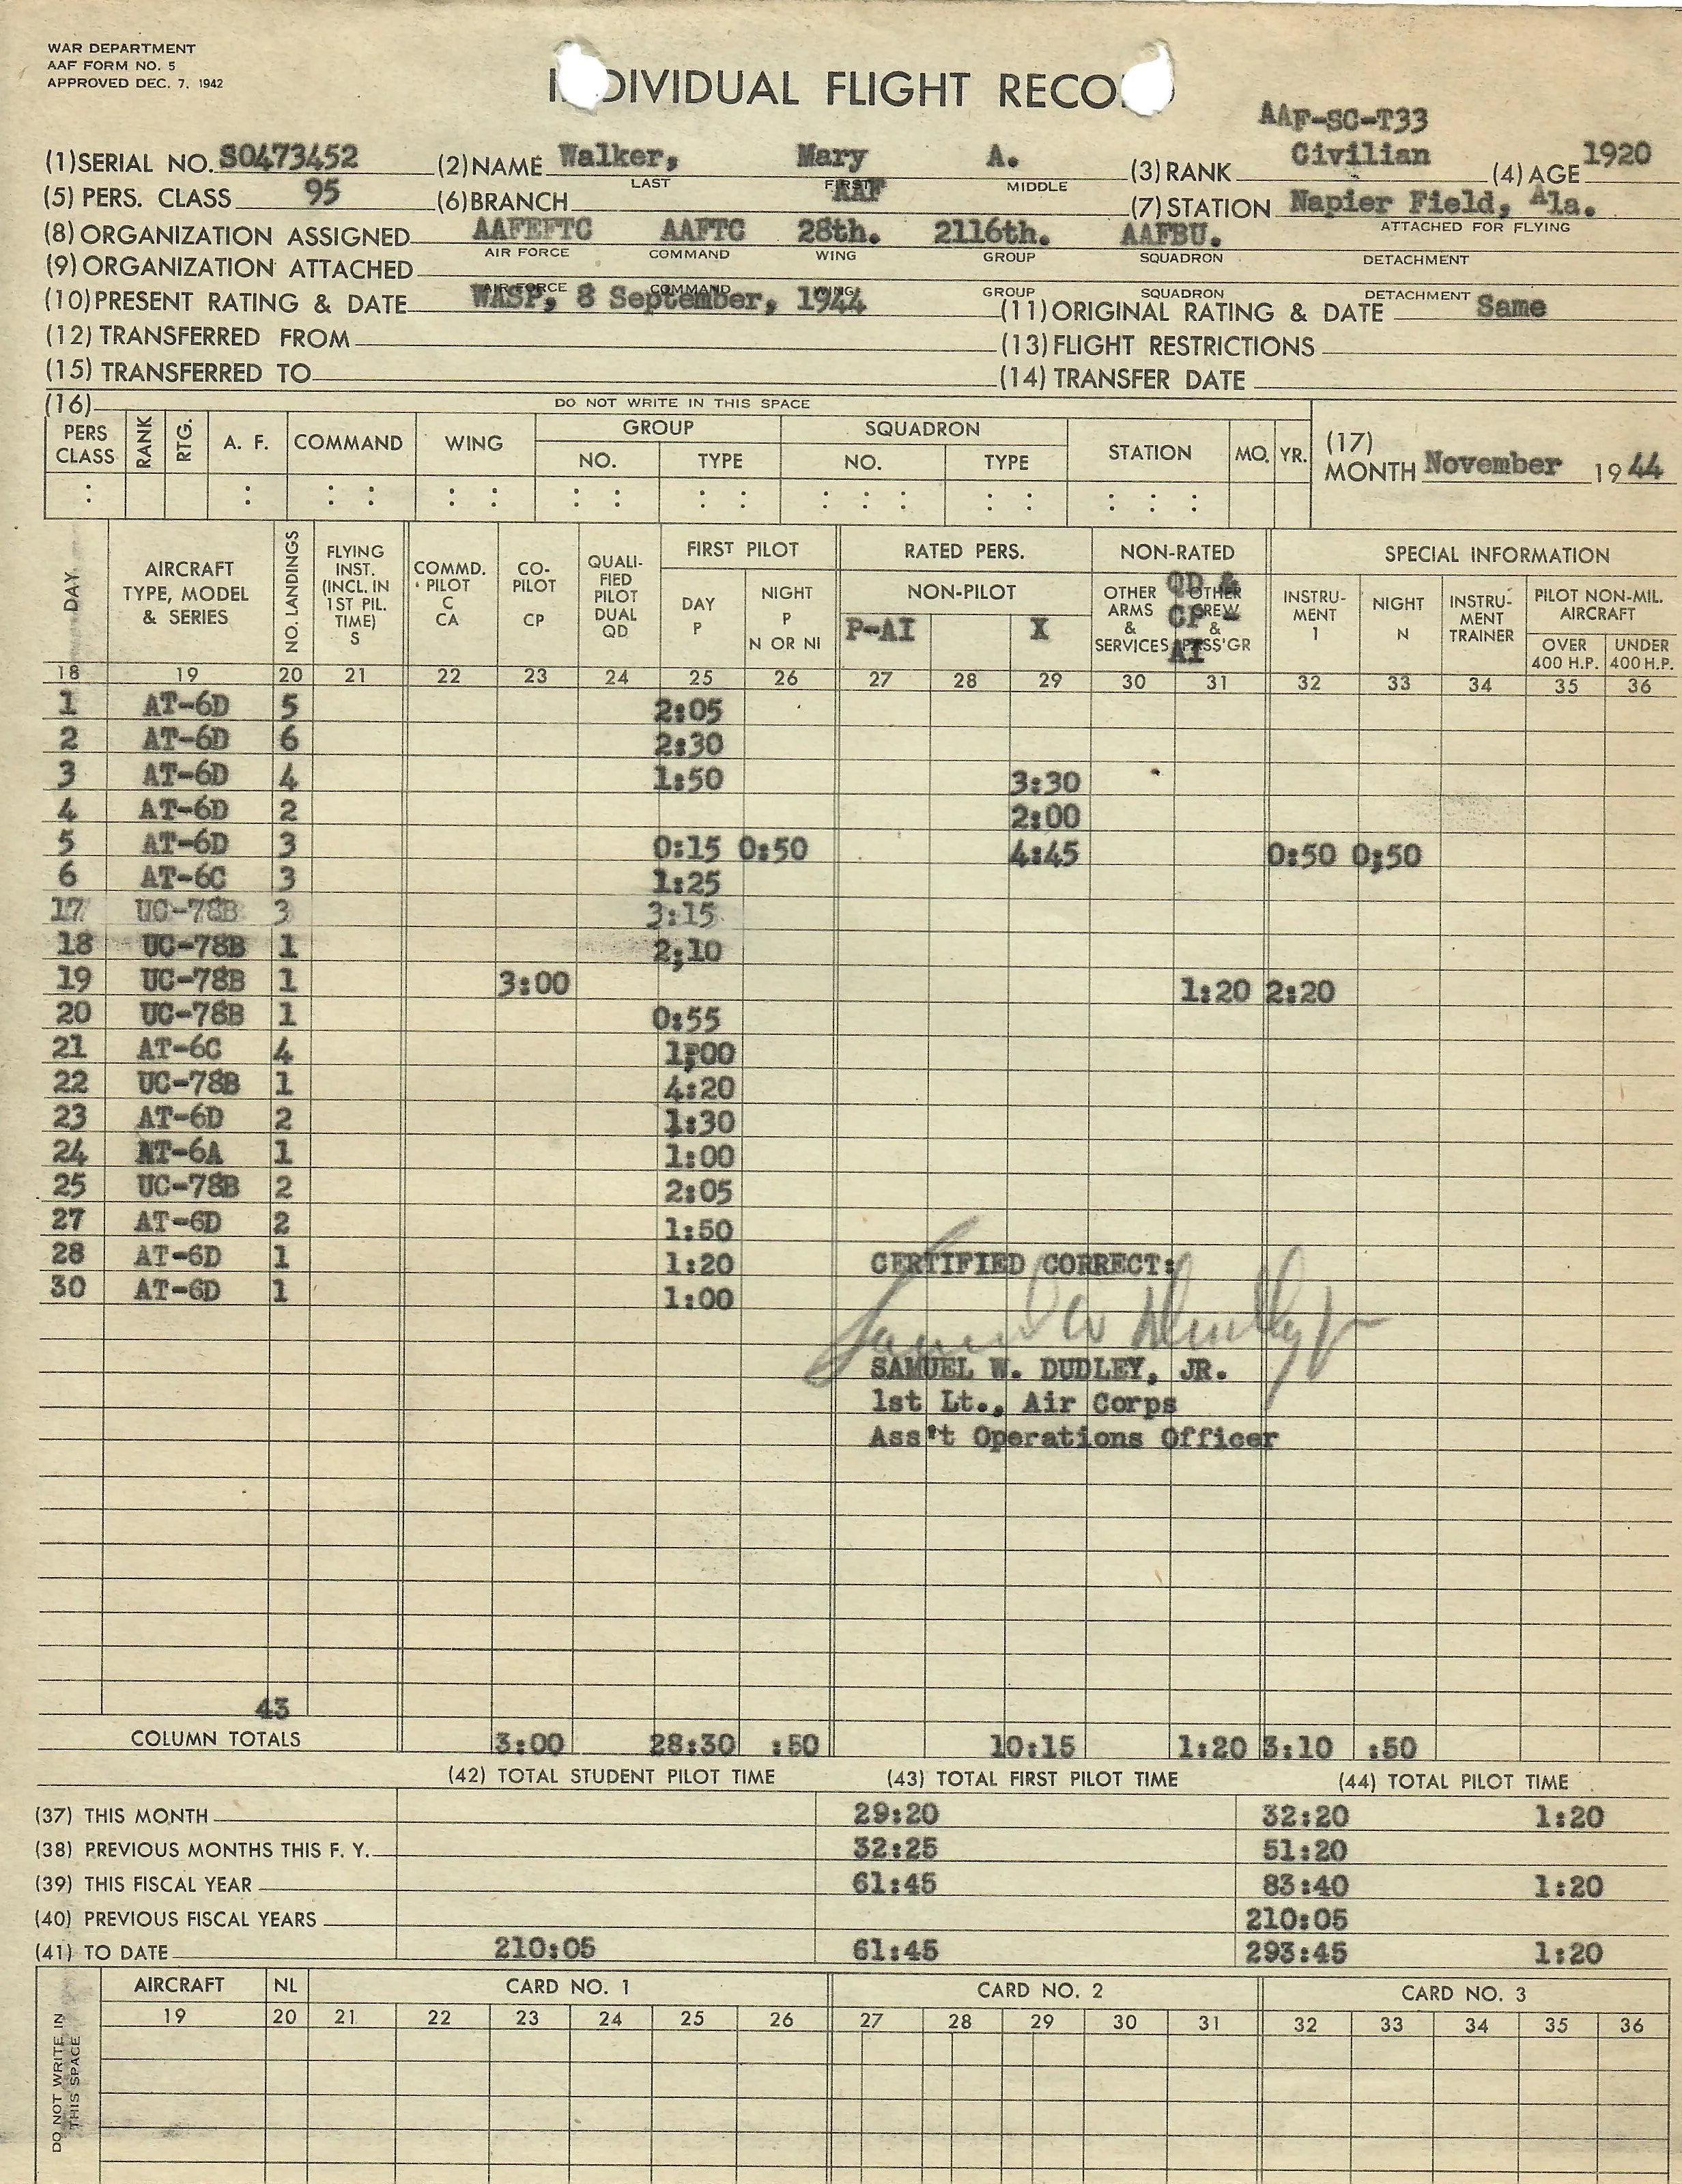 WAR DEPARTMENT
AAF FORM NO. 5
APPROVED DEC. 7, 1942
INDIVIDUAL FLIGHT RECORD
AAF-SC-T33
(1) SERIAL NO. S0473452 (2) NAME Walker, Mary A. (3) RANK Civilian (4) AGE 1920
LAST FIRST MIDDLE
(5) PERS. CLASS 95 (6) BRANCH AAF (7) STATION Napier Field, Ala.
ATTACHED FOR FLYING
(8) ORGANIZATION ASSIGNED AAFEFTC AAFTC 28th. 2116th. AAFBU.
AIR FORCE COMMAND WING GROUP SQUADRON DETACHMENT
(9) ORGANIZATION ATTACHED
AIR FORCE COMMAND WING GROUP SQUADRON DETACHMENT
(10) PRESENT RATING & DATE WASP, 8 September, 1944 (11) ORIGINAL RATING & DATE Same
(12) TRANSFERRED FROM (13) FLIGHT RESTRICTIONS
(15) TRANSFERRED TO (14) TRANSFER DATE
(16) DO NOT WRITE IN THIS SPACE
PERS CLASS RANK RTG. A. F. COMMAND WING GROUP NO. TYPE SQUADRON NO. TYPE STATION MO. YR. (17) MONTH November 1944
: : : : : : : : : : : : : : : : : :
DAY AIRCRAFT TYPE, MODEL & SERIES NO. LANDINGS FLYING INST. (INCL. IN 1ST PIL. TIME) S COMMD. PILOT C CA CO-PILOT CP QUALIFIED PILOT DUAL QD FIRST PILOT DAY P NIGHT P N OR NI RATED PERS. NON-PILOT P-AI X NON-RATED OTHER ARMS & SERVICES OTHER CREW & PASS'GR QD & CP-AI SPECIAL INFORMATION INSTRUMENT I NIGHT N INSTRUMENT TRAINER PILOT NON-MIL. AIRCRAFT OVER 400 H.P. UNDER 400 H.P.
18 19 20 21 22 23 24 25 26 27 28 29 30 31 32 33 34 35 36
1 AT-6D 5 2:05
2 AT-6D 6 2:30
3 AT-6D 4 1:50 3:30
4 AT-6D 2 2:00
5 AT-6D 3 0:15 0:50 4:45 0:50 0;50
6 AT-6C 3 1:25
17 UC-78B 3 3:15
18 UC-78B 1 2;10
19 UC-78B 1 3:00 1:20 2:20
20 UC-78B 1 0:55
21 AT-6C 4 1:00
22 UC-78B 1 4:20
23 AT-6D 2 1:30
24 AT-6A 1 1:00
25 UC-78B 2 2:05
27 AT-6D 2 1:50
28 AT-6D 1 1:20 CERTIFIED CORRECT:
30 AT-6D 1 1:00
Samuel W Dudley Jr
SAMUEL W. DUDLEY, JR.
1st Lt., Air Corps
Ass't Operations Officer
43
COLUMN TOTALS 3:00 28:30 :50 10:15 1:20 3:10 :50
(42) TOTAL STUDENT PILOT TIME (43) TOTAL FIRST PILOT TIME (44) TOTAL PILOT TIME
(37) THIS MONTH 29:20 32:20 1:20
(38) PREVIOUS MONTHS THIS F. Y. 32:25 51:20
(39) THIS FISCAL YEAR 61:45 83:40 1:20
(40) PREVIOUS FISCAL YEARS 210:05
(41) TO DATE 210:05 61:45 293:45 1:20
AIRCRAFT NL CARD NO. 1 CARD NO. 2 CARD NO. 3
19 20 21 22 23 24 25 26 27 28 29 30 31 32 33 34 35 36
DO NOT WRITE IN THIS SPACE